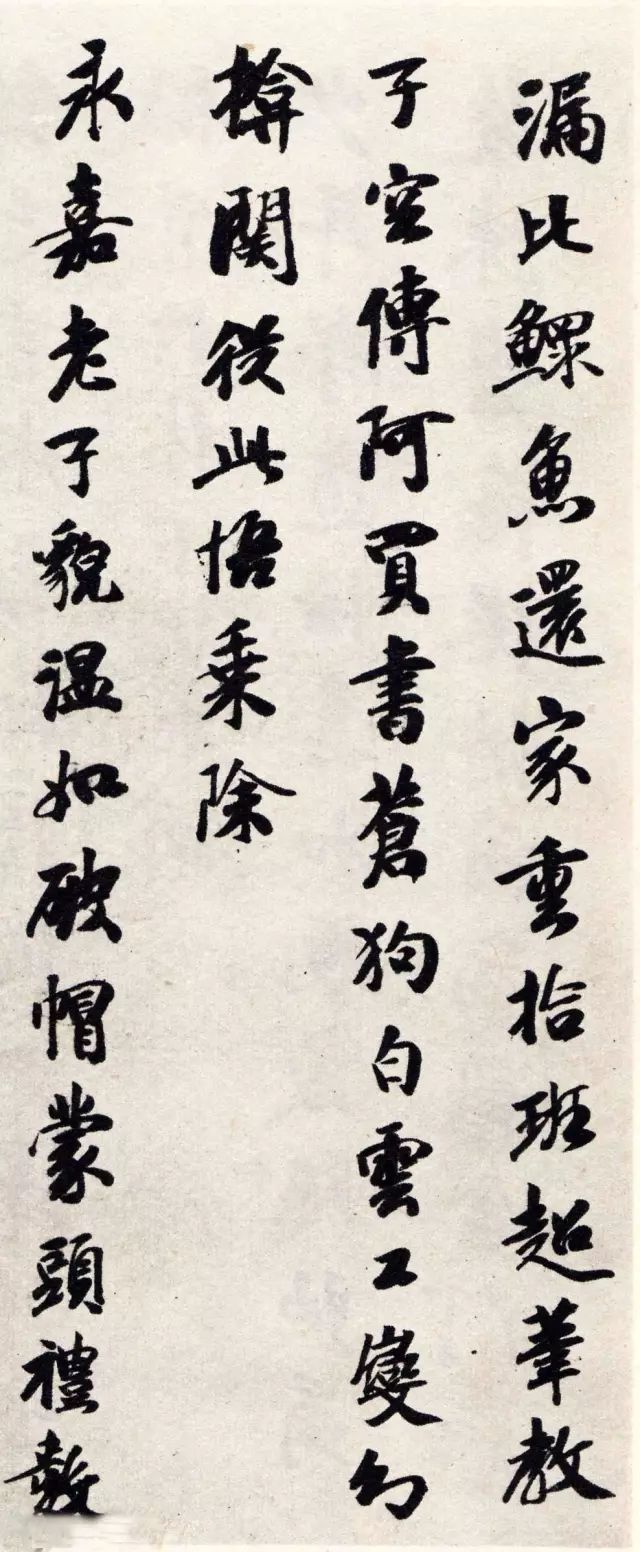 漏比鰥魚還家重拾班超筆教
子空傳阿買書蒼狗白雲工變幻
揜關從此悟乘除
永嘉老子貌温如破帽蒙頭禮數